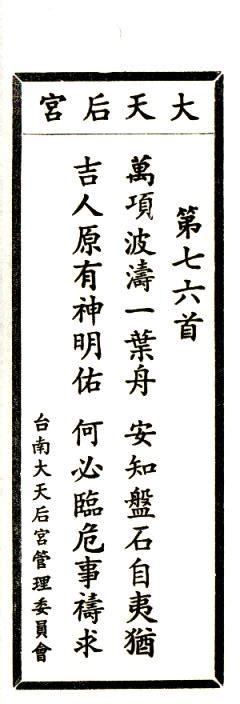 大天后宮
第七六首
萬項波濤一葉舟 安知盤石自夷猶
吉人原有神明佑 何必臨危事禱求
台南大天后宮管理委員會